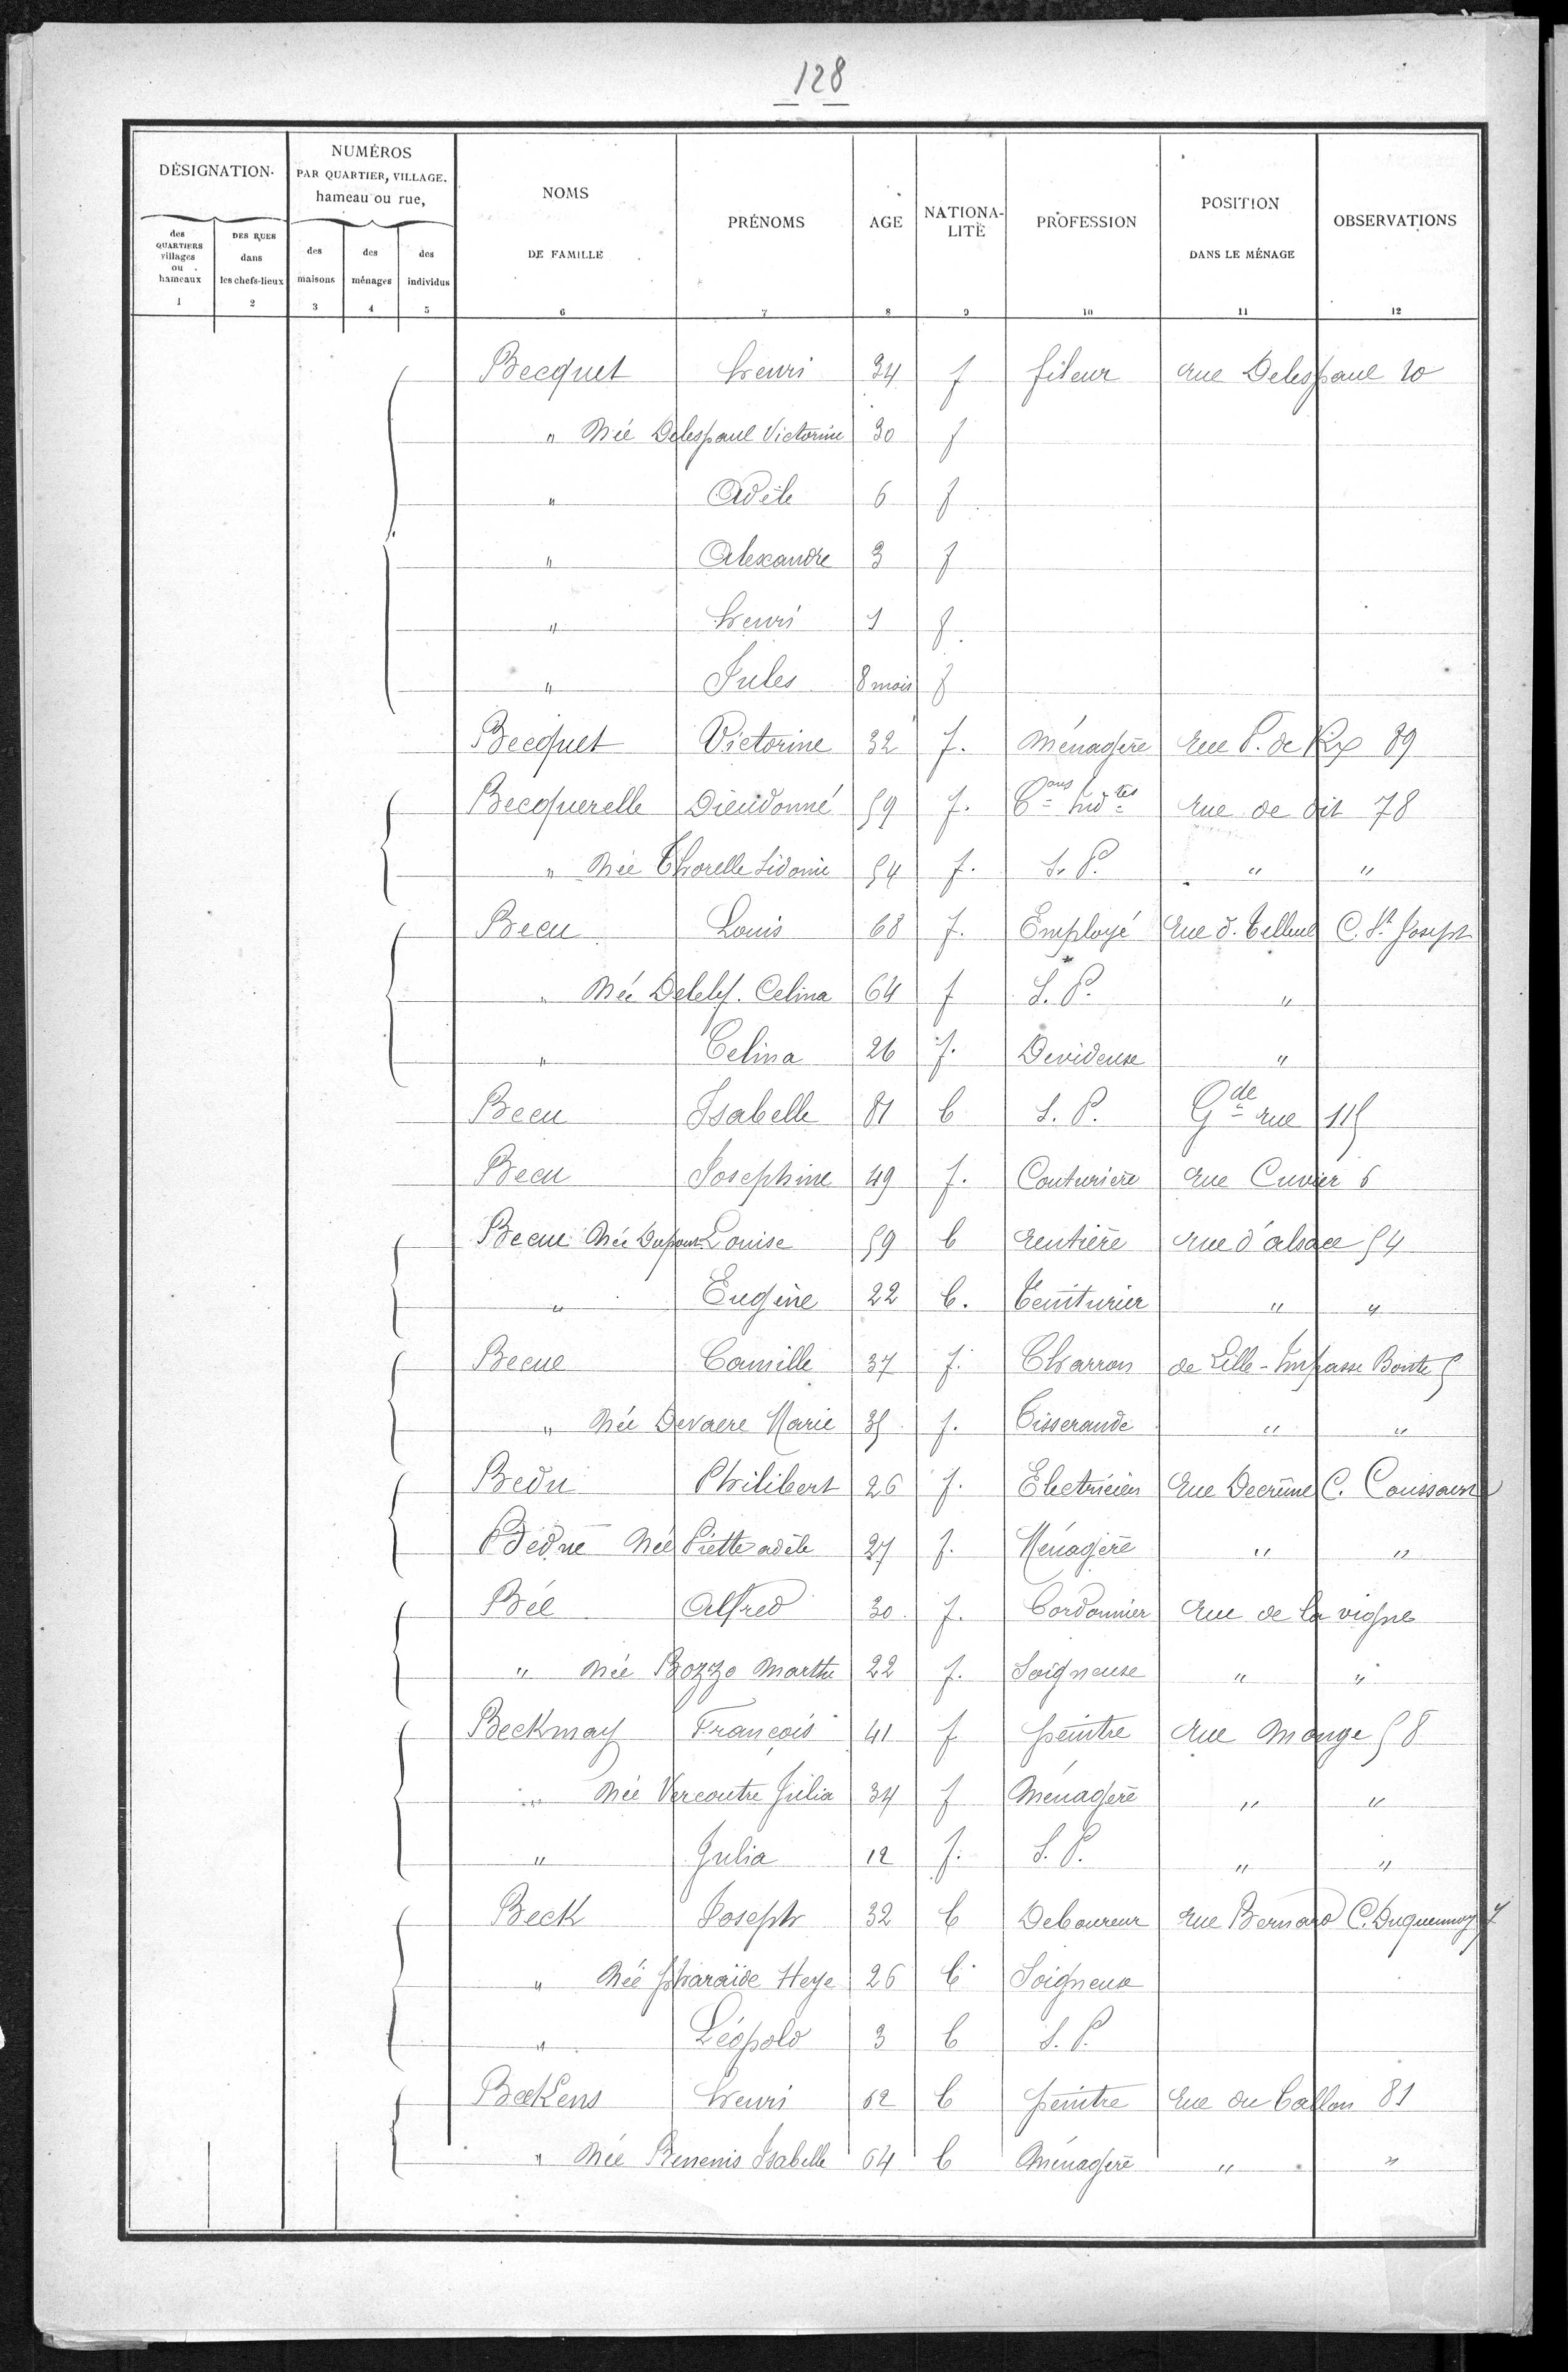 128
DÉSIGNATION.
NUMÉROS
PAR QUARTIER, VILLAGE.
hameau ou rue,
des QUARTIERS villages ou hameaux
DES RUES dans les chefs-lieux
des maisons
des ménages
des individus
NOMS
DE FAMILLE
PRÉNOMS
AGE
NATIONALITÉ
PROFESSION
POSITION
DANS LE MÉNAGE
OBSERVATIONS
1 2 3 4 5 6 7 8 9 10 11 12
Becquet Henri 34 f fileur rue Delespaul 20
" Née Delespaul Victorine 30 f
" Adèle 6 f
" Alexandre 3 f
" Henri 1 f.
" Jules 8 mois f
Becquet Victorine 32 f. Ménagère rue P. de Rx 89
Becquerelle Dieudonné 59 f. rue de dit 78
" Née Thorelle Sidonie 54 f. S. P. " "
Becu Louis 68 f. Employé rue d. Tilleul C. St Joseph
" Née Celina 64 f S. P. "
" Celina 26 f. Devideuse "
Becu Isabelle 81 b S. P. Gde rue 115
Becu Josephine 49 f. Couturière rue Cuvier 6
Becue Née Louise 59 b rentière rue d'alsace 54
" Eugène 22 b. teinturier " "
Becue Camille 37 f. Charron de Lille - Impasse Bonte 5
" Née Devaere Marie 35 f. Tisserande " "
Bedu Philibert 26 f. Electricien rue Decrême C.
Bedue Née Piette adèle 27 f. Ménagère " "
Bée Alfred 30 f. Cordonnier rue de la vigne
" née Bozzo Marthe 22 f. Soigneuse " "
Beckmay François 41 f peintre rue Monge 58
" née Vercoutre Julia 34 f Ménagère " "
" Julia 12 f. S. P. " "
Beck Joseph 32 b Deboureur rue Bernard C. Duquennoy 7
" Née pharaïde Heye 26 b Soigneuse
" Léopold 3 b S. P.
Beekens Henri 62 b peintre rue du ballon 81
" Née Isabelle 64 b Ménagère " "